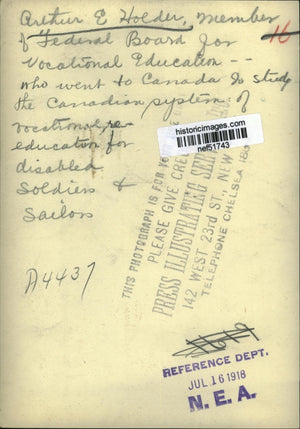 Arthur E Holder, member
of Federal Board for
Vocational Education --
who went to Canada to study
the Canadian system of
vocational re-
education for
disabled
Soldiers &
Sailors
16
historicimages.com
nef51743
THIS PHOTOGRAPH IS FOR
PLEASE GIVE CREDIT
PRESS ILLUSTRATING SERVICE
142 WEST 23rd ST., NEW
TELEPHONE CHELSEA
A4437
REFERENCE DEPT.
JUL 16 1918
N. E. A.